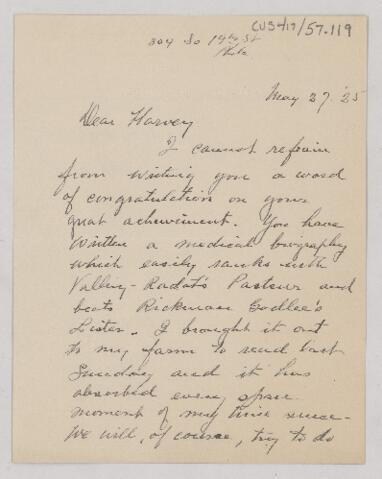 CUS417/57.119
304 So 19th St
Phila
May 27. '25
Dear Harvey
I cannot refrain
from writing you a word
of congratulation on your
great achievement. You have
written a medical biography
which easily ranks with
Vallery-Radot's Pasteur and
beats Rickman Godlee's
Lister. I brought it out
to my farm to read last
Sunday and it has
absorbed every spare
moment of my time since-
We will, of course, try to do